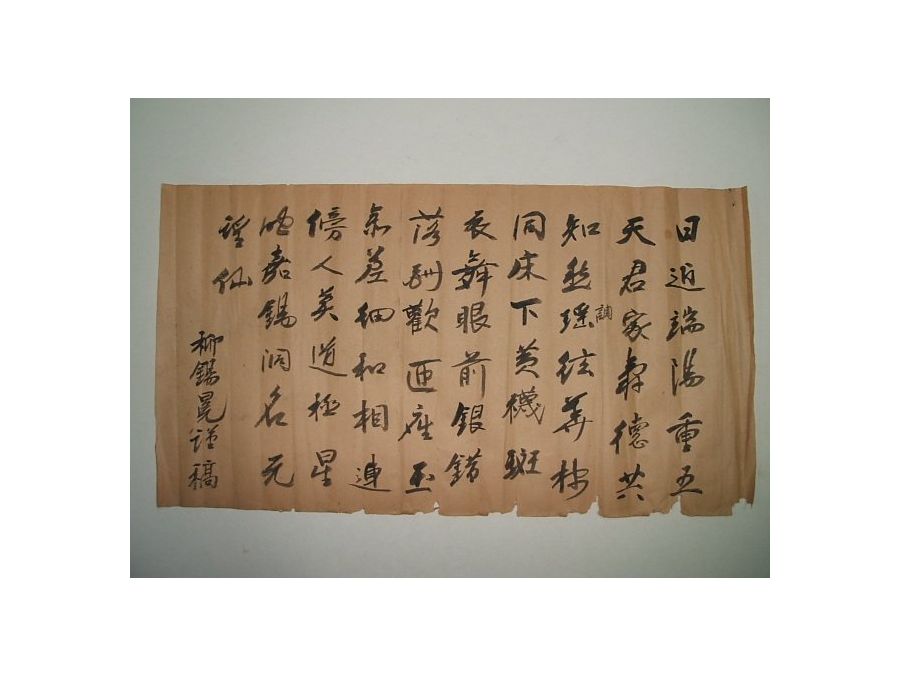 日近端陽重五
天君家壽德共
知然瑤絃華
調
同床下黃襪斑
衣舞眼前銀錯
落酬歡匝座玉
參差細和相連
傍人莫道極星
嘉錫洞名元
仙
柳錫冕謹稿